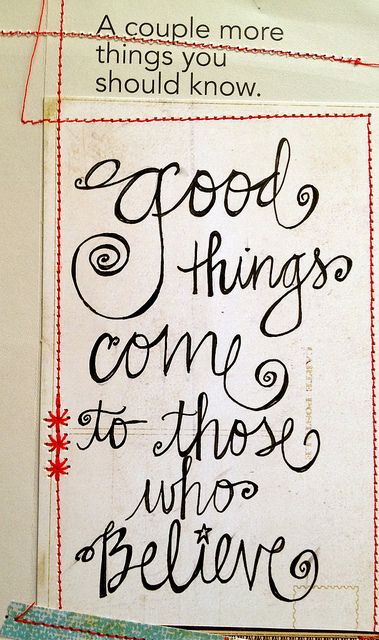 A couple more
things you
should know.
good
things
come
to those
who
Believe